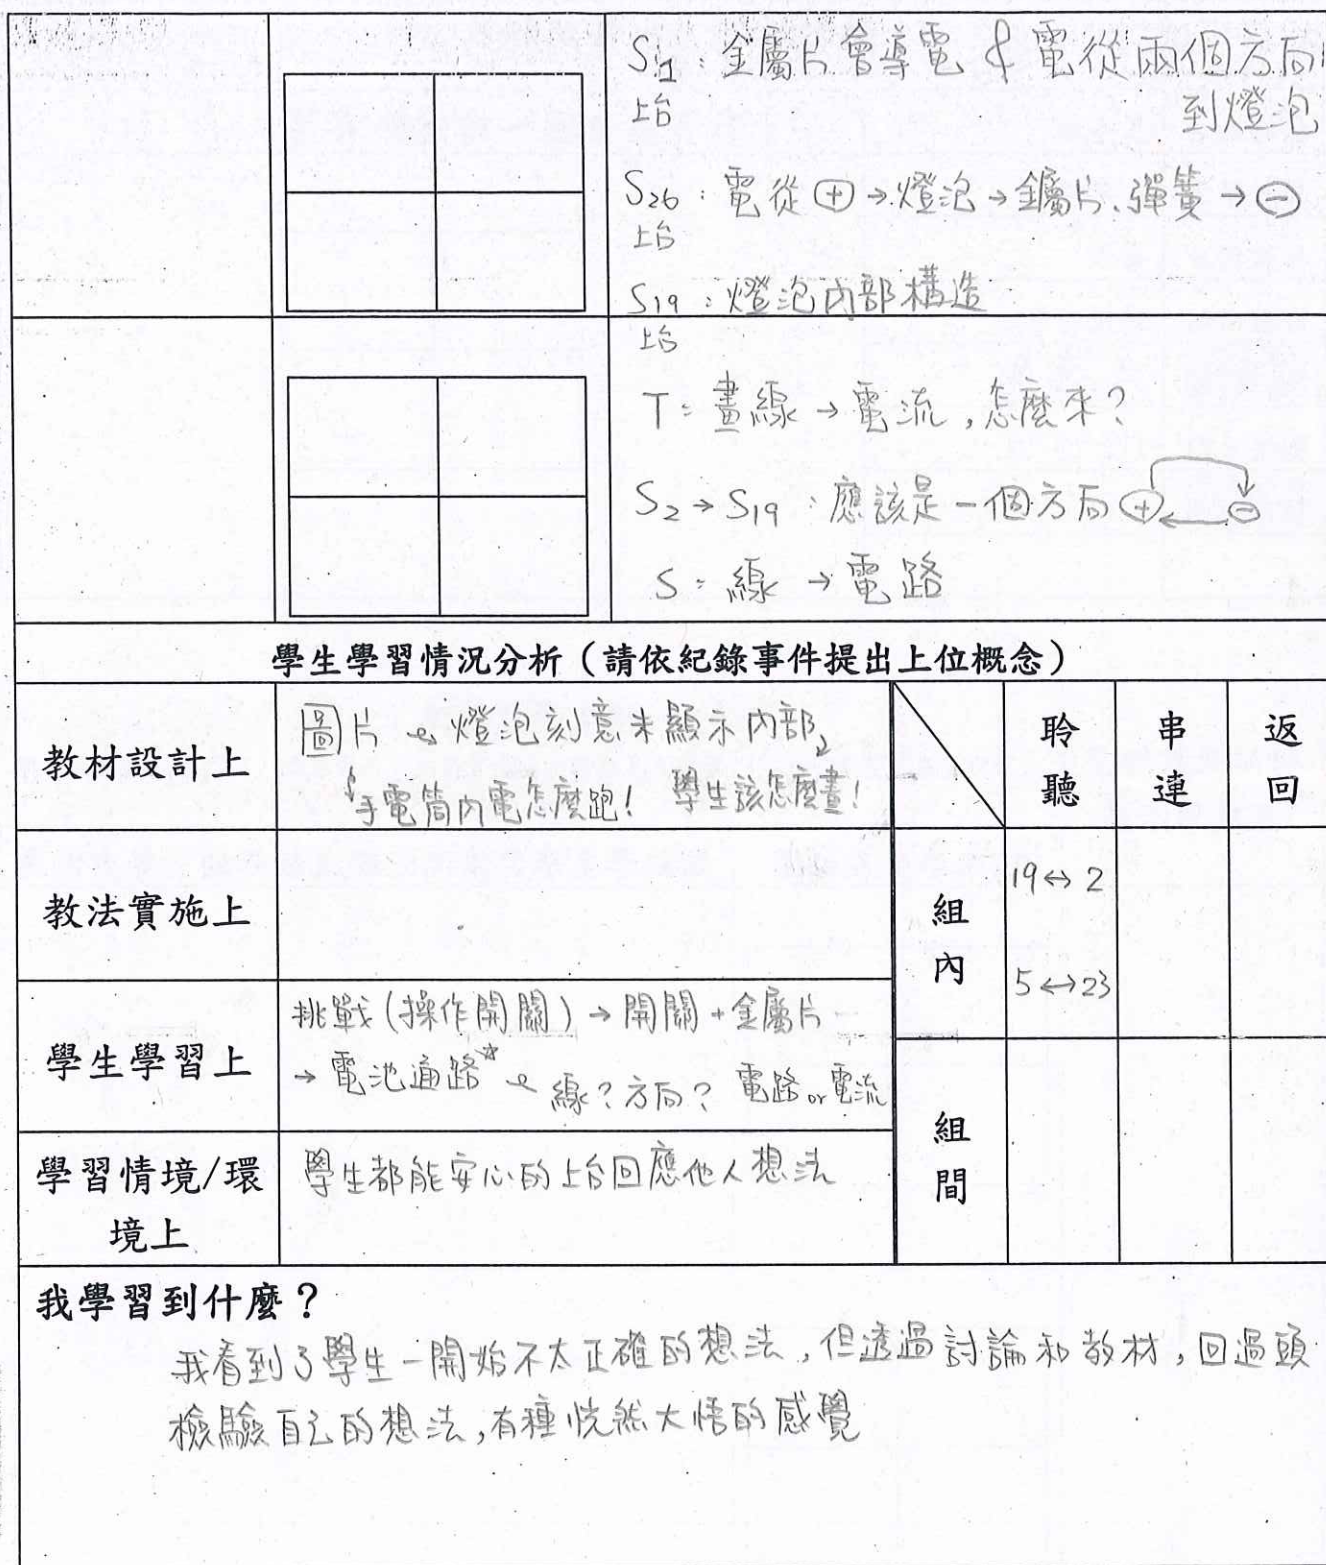 S1：金屬片會導電 & 電從兩個方向
上台
到燈泡
S26：電從⊕→燈泡→金屬片、彈簧→⊖
上台
S19：燈泡內部構造
上台
T：畫線→電流，怎麼來？
S2→S19：應該是一個方向⊕ ⊖
S：線→電路
學生學習情況分析（請依紀錄事件提出上位概念）
教材設計上
圖片 燈泡刻意未顯示內部
手電筒內電怎麼跑！ 學生該怎麼畫！
聆聽
串連
返回
教法實施上
組內
19↔2
5↔23
學生學習上
挑戰(操作開關)→開關+金屬片
→電池通路☆ 線？方向？ 電路 or 電流
組間
學習情境/環
境上
學生都能安心的上台回應他人想法
我學習到什麼？
我看到了學生一開始不太正確的想法，但透過討論和教材，回過頭
檢驗自己的想法，有種恍然大悟的感覺